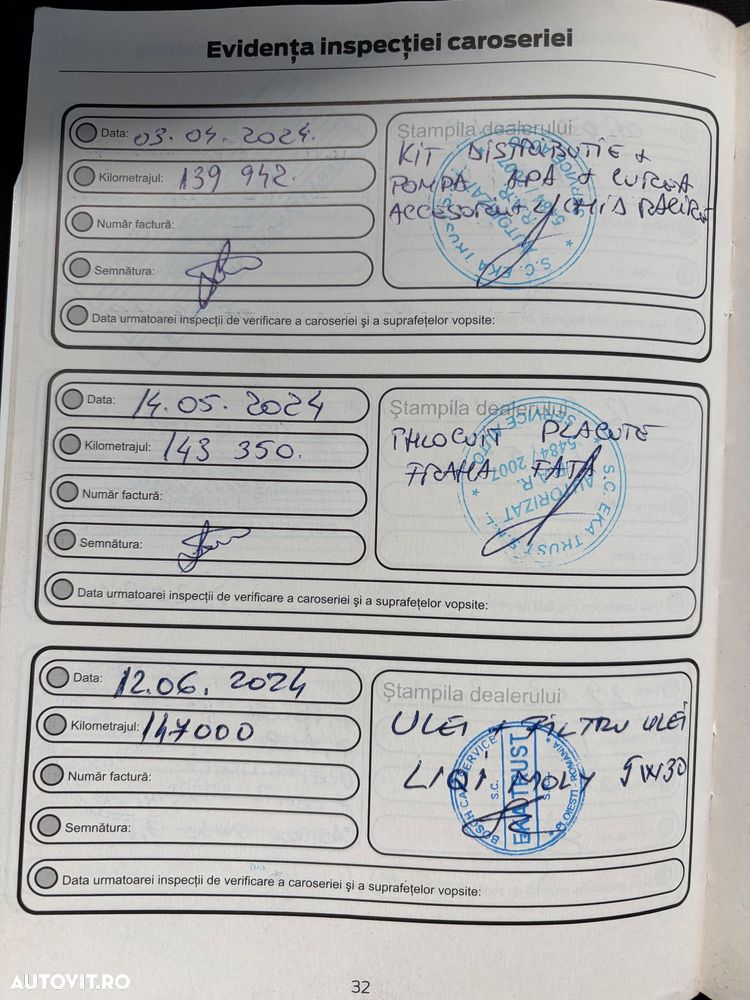 Evidența inspecției caroseriei
Data: 03.04.2024.
Kilometrajul: 139 942.
Număr factură:
Semnătura:
Ștampila dealerului
KIT DISTRIBUTIE +
POMPA APA + CUREA
ACCESORII + LICHID RACIRE
S.C. EKA TRUST
AUTORIZAT
Data urmatoarei inspecții de verificare a caroseriei și a suprafețelor vopsite:
Data: 14.05.2024
Kilometrajul: 143 350.
Număr factură:
Semnătura:
Ștampila dealerului
INLOCUIT PLACUTE
FRANA FATA
S.C. EKA TRUST S.R.L.
SERVICE AUTO
AUTORIZAT
Data urmatoarei inspecții de verificare a caroseriei și a suprafețelor vopsite:
Data: 12.06.2024
Kilometrajul: 147000
Număr factură:
Semnătura:
Ștampila dealerului
ULEI + FILTRU ULEI
LIQI MOLY 5W30
BOSCH CAR SERVICE
S.C.
EKA TRUST
PLOIESTI - ROMANIA
Data urmatoarei inspecții de verificare a caroseriei și a suprafețelor vopsite:
32
AUTOVIT.RO